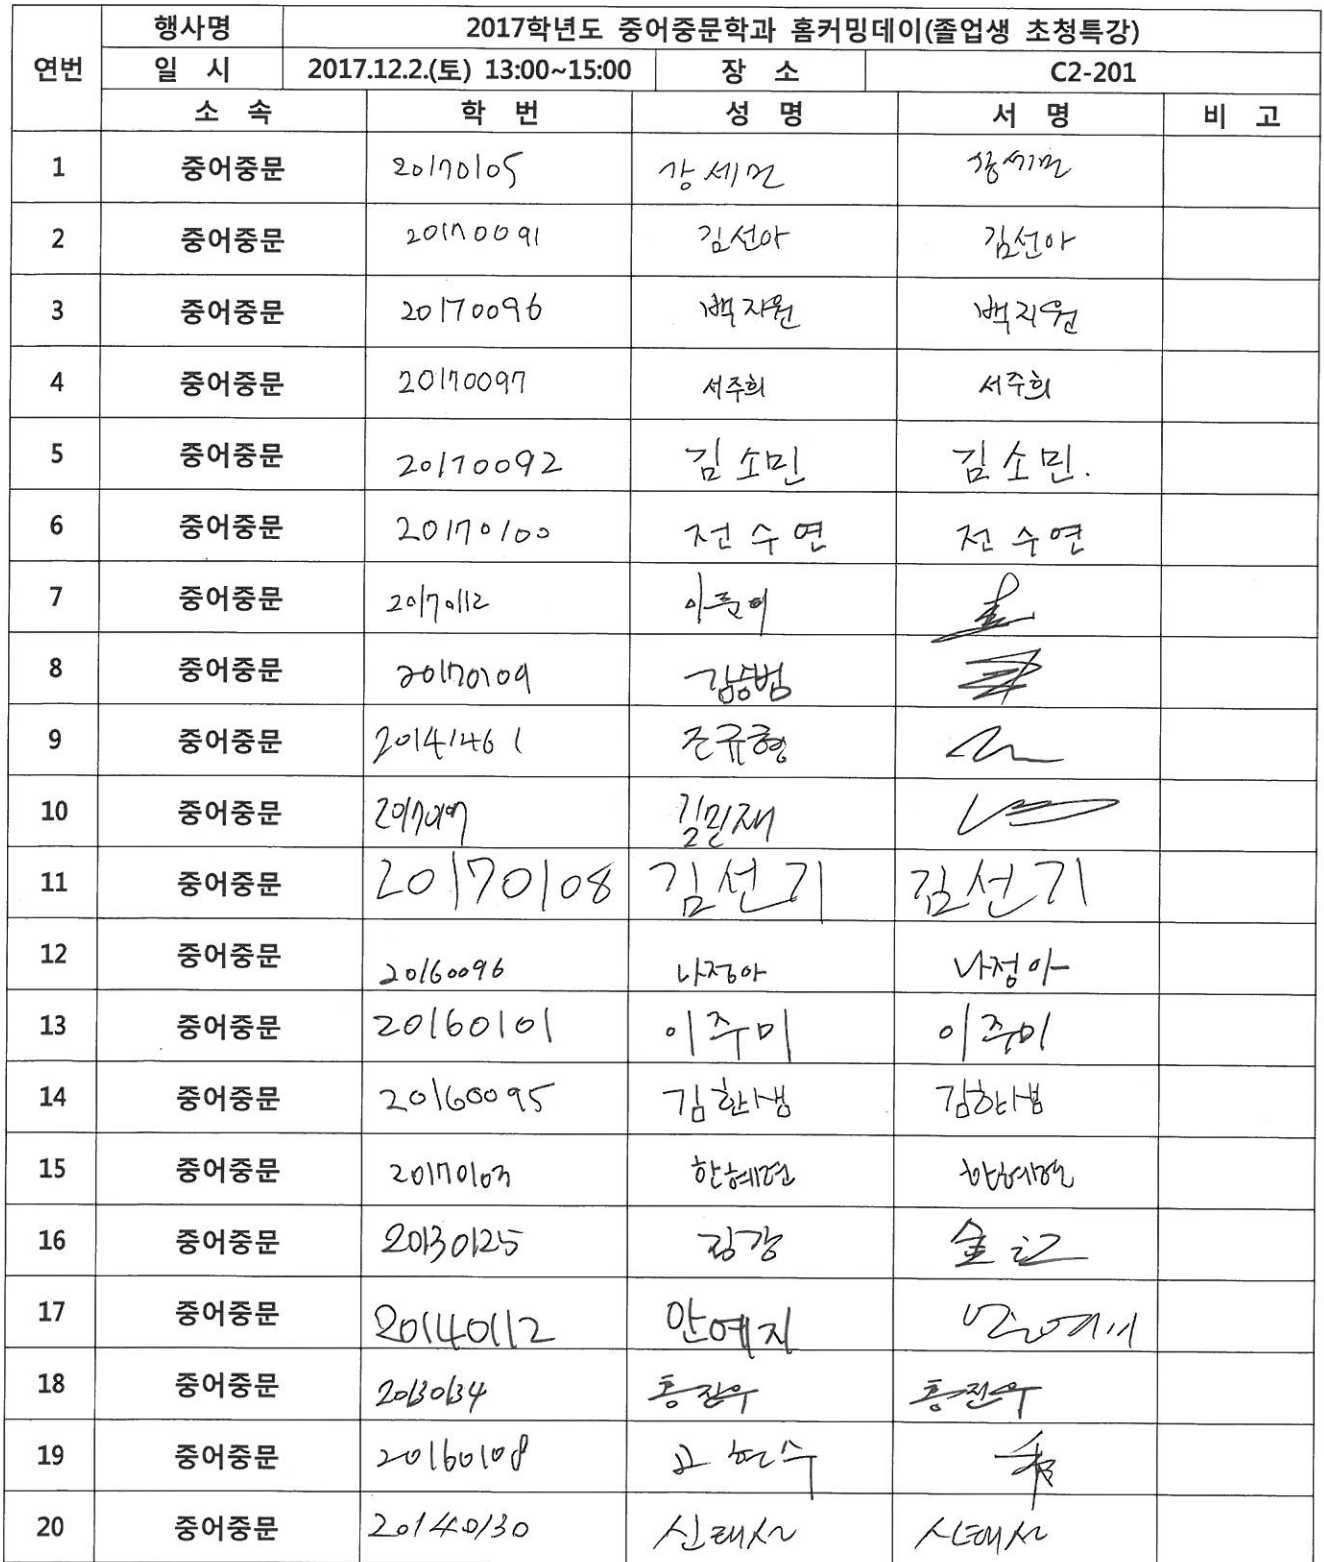 연번 행사명 2017학년도 중어중문학과 홈커밍데이(졸업생 초청특강)
일 시 2017.12.2.(토) 13:00~15:00 장 소 C2-201
소 속 학 번 성 명 서 명 비 고
1 중어중문 20170105 강세민 강세민
2 중어중문 20170091 김선아 김선아
3 중어중문 20170096 백지원 백지원
4 중어중문 20170097 서주희 서주희
5 중어중문 20170092 김소민 김소민.
6 중어중문 20170100 전수연 전수연
7 중어중문 20170112
8 중어중문 20170109 김승범
9 중어중문 20141461 조규형
10 중어중문 김민재
11 중어중문 20170108 김선기 김선기
12 중어중문 20160096 나정아 나정아
13 중어중문 20160101 이주미 이주미
14 중어중문 20160095 김한샘 김한샘
15 중어중문 20170103
16 중어중문 20130125 김강 金江
17 중어중문 20140112 안예지 안예지
18 중어중문 20130134 홍진우 홍진우
19 중어중문 20160108 고현수
20 중어중문 20140130